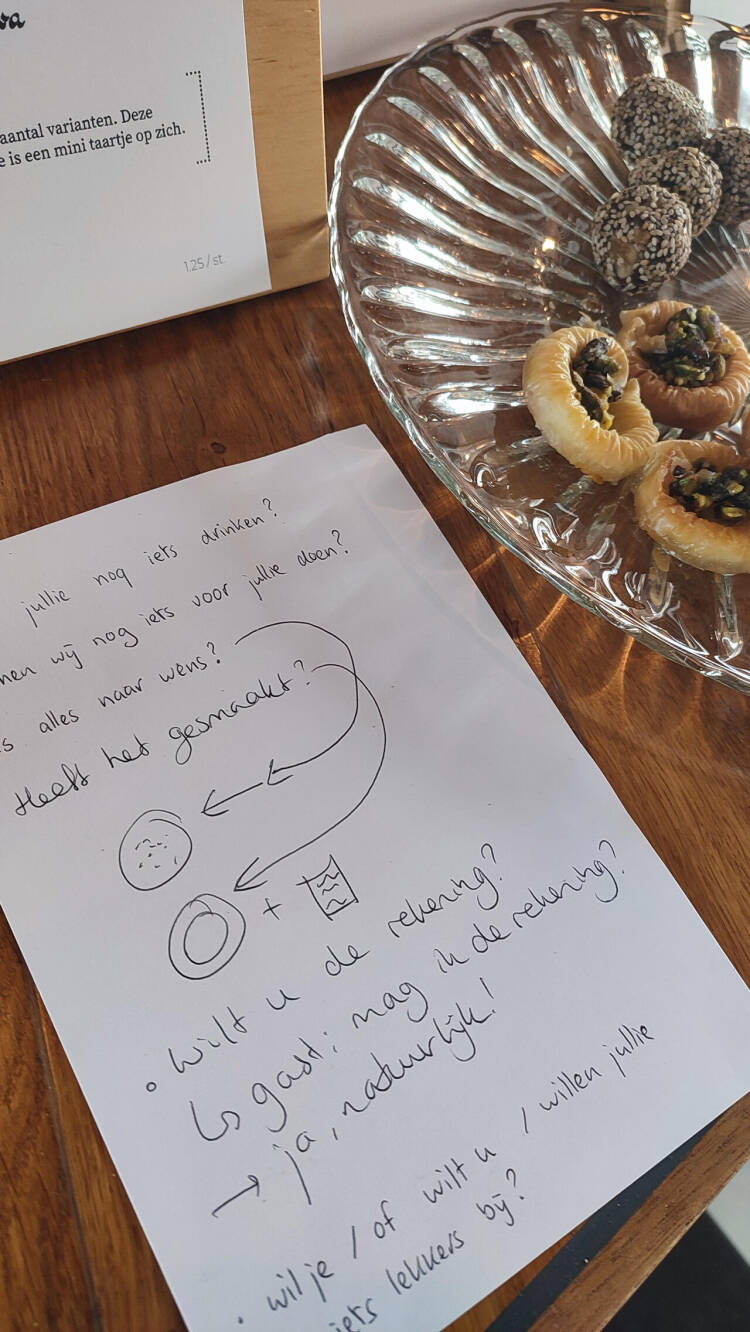 aantal varianten. Deze
is een mini taartje op zich.
1,25/st.
jullie nog iets drinken?
nen wij nog iets voor jullie doen?
s alles naar wens?
Heeft het gesmaakt?
wilt u de rekening?
gast: mag ik de rekening?
→ ja, natuurlijk!
• wil je / of wilt u / willen jullie
iets lekkers bij?